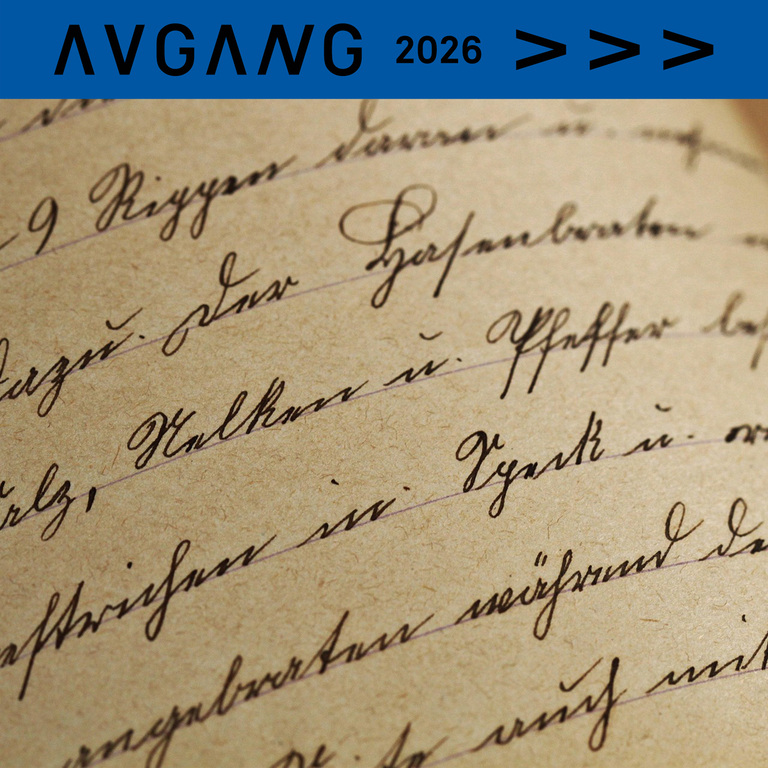 AVGANG 2026 > > >
9 Rippen daran u.
dazu. Der Hasenbraten
Salz, Nelken u. Pfeffer
in Speck u.
angebraten während
auch mit